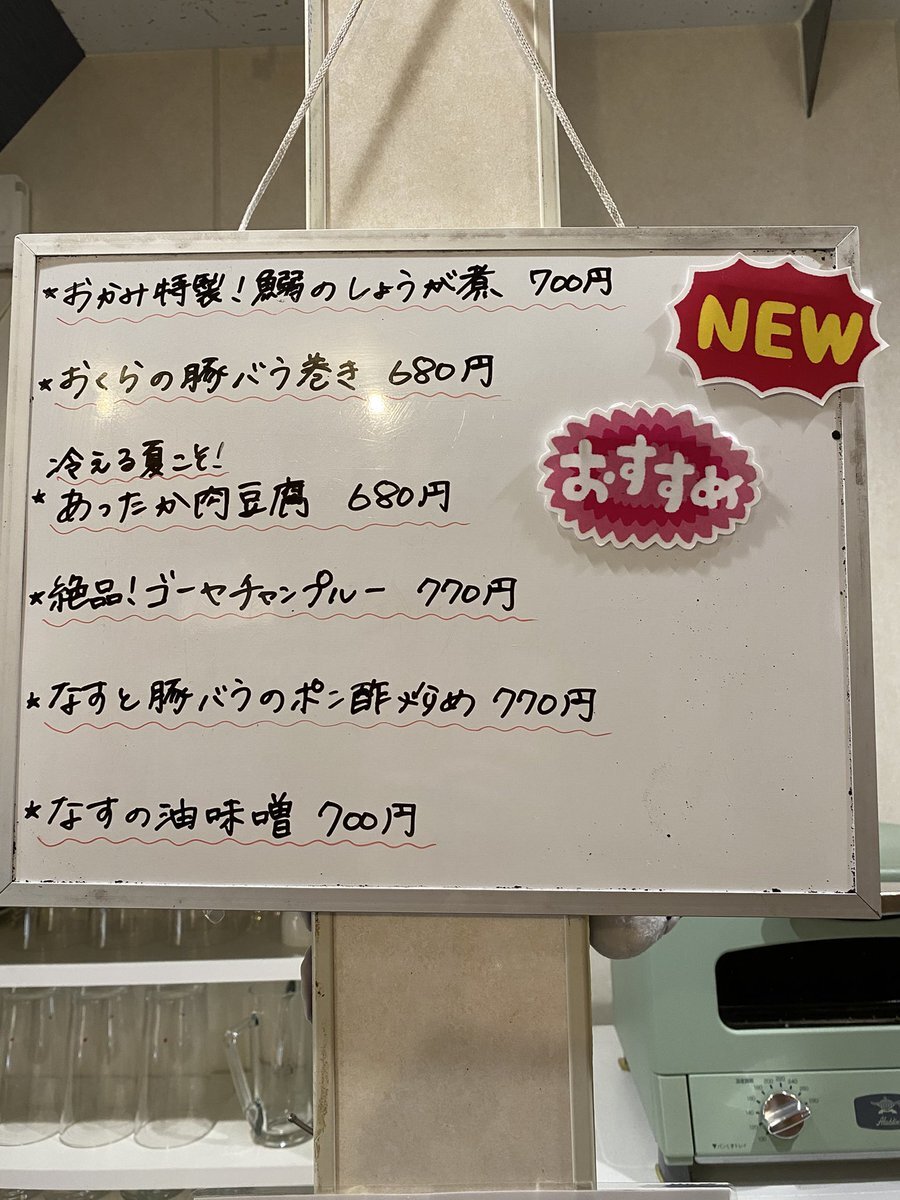 ★おかみ特製!鰯のしょうが煮 700円
NEW
★おくらの豚バラ巻き 680円
おすすめ
冷える夏こそ!
★あったか肉豆腐 680円
★絶品!ゴーヤチャンプルー 770円
★なすと豚バラのポン酢炒め 770円
★なすの油味噌 700円
Aladdin